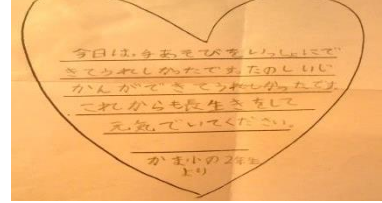 今日は、手あそびをいっしょにで
きてうれしかったです。たのしいじ
かんができてうれしかったです。
これからも長生きをして
元気でいてください。
小の2年生
より